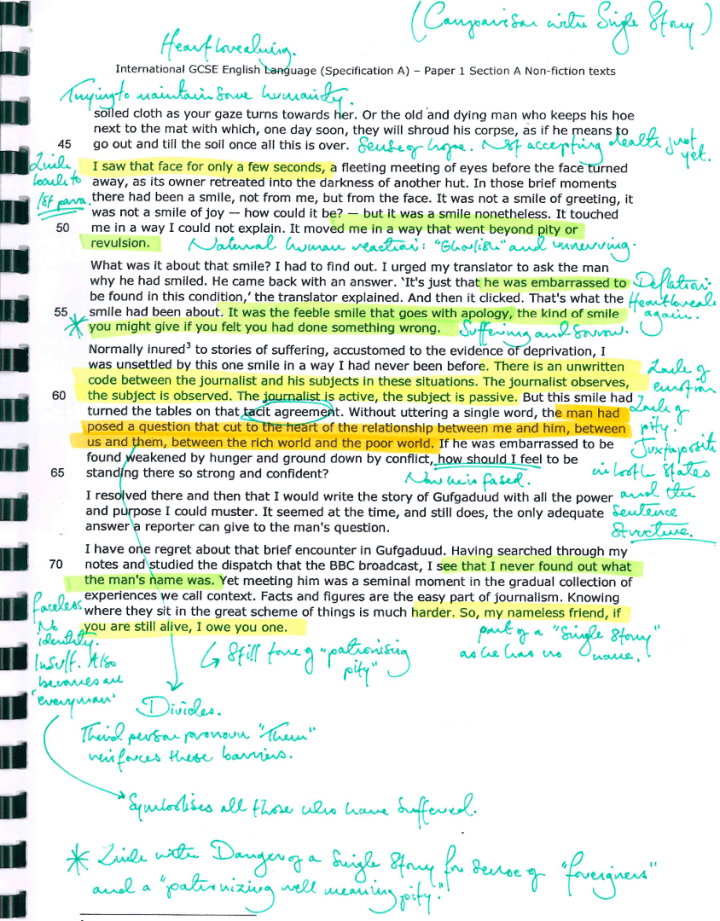 (Comparison with Single Story)
Heartbreaking.
International GCSE English Language (Specification A) – Paper 1 Section A Non-fiction texts
Trying to maintain some humanity.
soiled cloth as your gaze turns towards her. Or the old and dying man who keeps his hoe
next to the mat with which, one day soon, they will shroud his corpse, as if he means to
45 go out and till the soil once all this is over. Sense of hope. Not accepting death just yet.
Links back to 1st para.
I saw that face for only a few seconds, a fleeting meeting of eyes before the face turned
away, as its owner retreated into the darkness of another hut. In those brief moments
there had been a smile, not from me, but from the face. It was not a smile of greeting, it
was not a smile of joy — how could it be? — but it was a smile nonetheless. It touched
50 me in a way I could not explain. It moved me in a way that went beyond pity or
revulsion. Natural human reaction: "Ghoulish" and unnerving.
What was it about that smile? I had to find out. I urged my translator to ask the man
why he had smiled. He came back with an answer. 'It's just that he was embarrassed to
be found in this condition,' the translator explained. And then it clicked. That's what the
55 smile had been about. It was the feeble smile that goes with apology, the kind of smile
you might give if you felt you had done something wrong. Suffering and sorrow.
again.
Normally inured³ to stories of suffering, accustomed to the evidence of deprivation, I
was unsettled by this one smile in a way I had never been before. There is an unwritten
code between the journalist and his subjects in these situations. The journalist observes,
60 the subject is observed. The journalist is active, the subject is passive. But this smile had
turned the tables on that tacit agreement. Without uttering a single word, the man had
posed a question that cut to the heart of the relationship between me and him, between
us and them, between the rich world and the poor world. If he was embarrassed to be
found weakened by hunger and ground down by conflict, how should I feel to be
65 standing there so strong and confident?
Lack of emotion
Lack of pity.
Juxtaposition
in both states
and the
sentence
structure.
I resolved there and then that I would write the story of Gufgaduud with all the power
and purpose I could muster. It seemed at the time, and still does, the only adequate
answer a reporter can give to the man's question.
I have one regret about that brief encounter in Gufgaduud. Having searched through my
70 notes and studied the dispatch that the BBC broadcast, I see that I never found out what
the man's name was. Yet meeting him was a seminal moment in the gradual collection of
experiences we call context. Facts and figures are the easy part of journalism. Knowing
where they sit in the great scheme of things is much harder. So, my nameless friend, if
you are still alive, I owe you one.
faceless
No
identity.
Insuff. Also
becomes an
'everyman'
Still tone of "patronising
pity"
part of a "Single Story"
as he has no name.
Divides.
Third person pronoun "Them"
reinforces these barriers.
Symbolises all those who have suffered.
* Link with Danger of a Single Story for sense of "foreigners"
and a "patronizing well meaning pity."